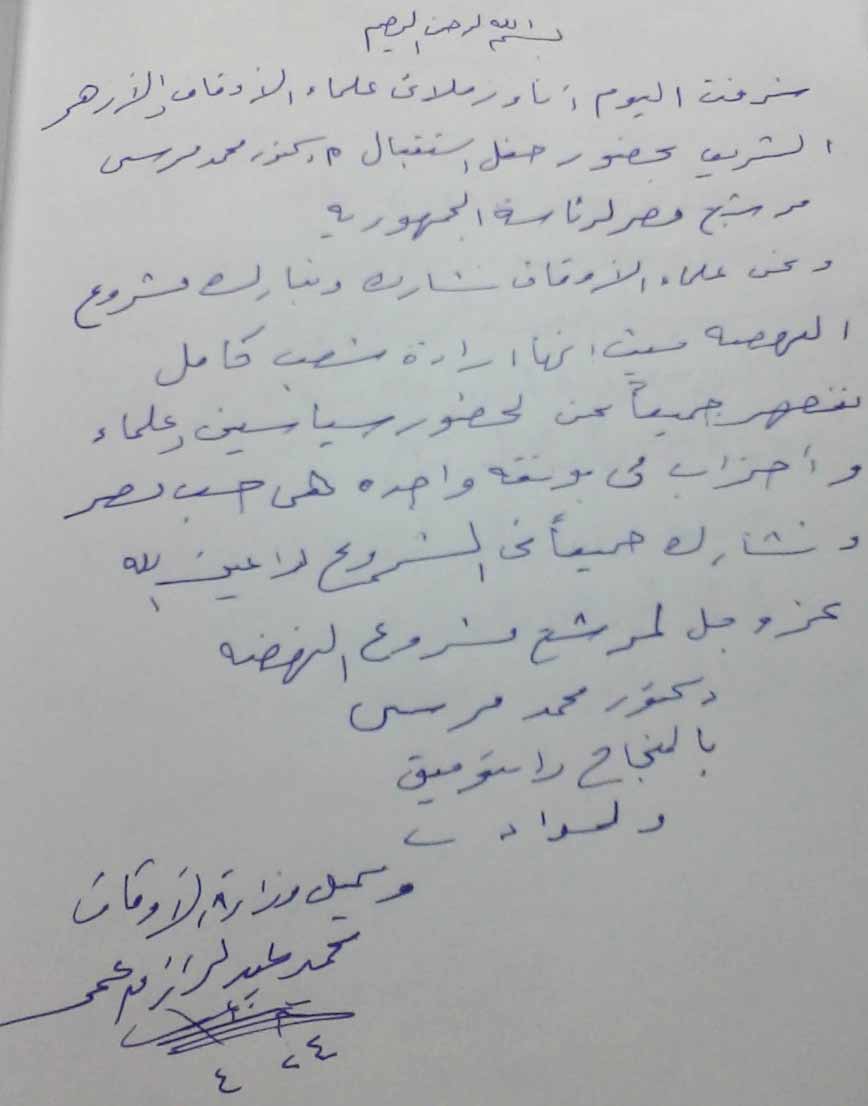 بسم الله الرحمن الرحيم
شرفت اليوم أنا وزملائى علماء الأوقاف والأزهر
الشريف بحضور حفل استقبال دكتور محمد مرسى
مرشح مصر لرئاسة الجمهورية
ونحن علماء الأوقاف نشارك ونبارك مشروع
النهضه حيث انها ارادة شعب كامل
ننصهر جميعاً نحن لحضور سياسين وعلماء
وأحزاب فى بوتقه واحده هى حب مصر
ونشارك جميعاً فى المشروع داعين الله
عز وجل لمرشح مشروع النهضه
دكتور محمد مرسى
بالنجاح والتوفيق
والسداد
وكيل وزارة الأوقاف
محمد عبد الرازق عمر